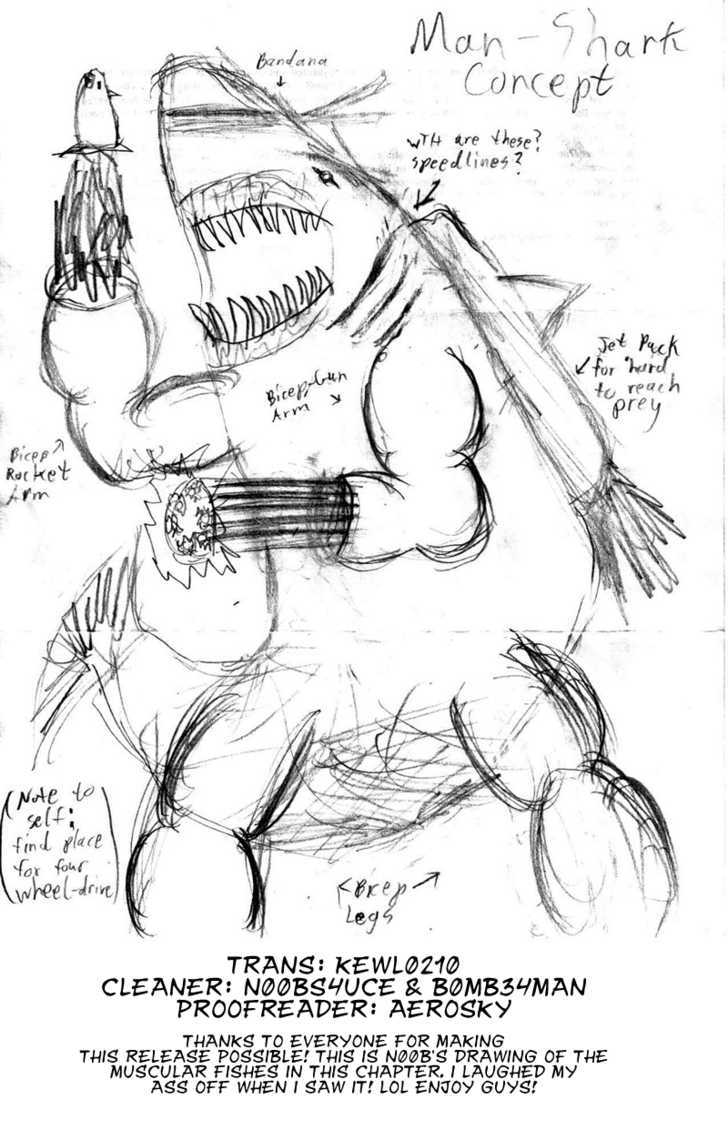 Man-Shark
Concept
Bandana
WTH are these?
speedlines?
Jet Pack
for hard
to reach
prey
Bicep-Gun
Arm
Bicep
Rocket
Arm
(Note to
self:
find place
for four
wheel-drive)
Bicep
Legs
TRANS: KEWL0210
CLEANER: N00BS4UCE & B0MB34MAN
PROOFREADER: AEROSKY
THANKS TO EVERYONE FOR MAKING
THIS RELEASE POSSIBLE! THIS IS N00B'S DRAWING OF THE
MUSCULAR FISHES IN THIS CHAPTER. I LAUGHED MY
ASS OFF WHEN I SAW IT! LOL ENJOY GUYS!